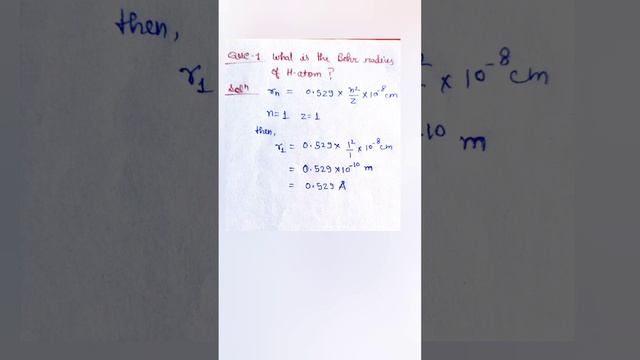 Que-1 What is the Bohr radius
of H-atom ?
Soln
rₙ = 0.529 × n²/z × 10⁻⁸ cm
n=1 z=1
then,
r₁ = 0.529 × 1²/1 × 10⁻⁸ cm
= 0.529 × 10⁻¹⁰ m
= 0.529 Å